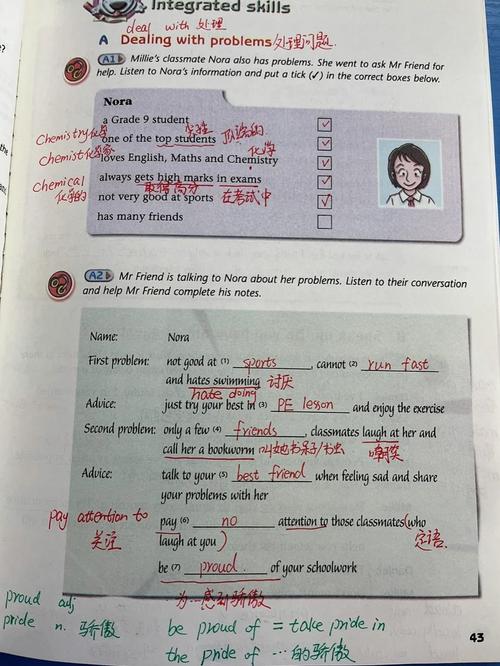 Integrated skills
deal with 处理
A Dealing with problems 处理问题.
A1 Millie's classmate Nora also has problems. She went to ask Mr Friend for
help. Listen to Nora's information and put a tick (✓) in the correct boxes below.
Nora
a Grade 9 student ✓
Chemistry化学
one of the top students 尖端 顶端的 ✓
化学
Chemist化学家
loves English, Maths and Chemistry ✓
Chemical
化学的
always gets high marks in exams ✓
取得高分
not very good at sports 在考试中 ✓
has many friends
A2 Mr Friend is talking to Nora about her problems. Listen to their conversation
and help Mr Friend complete his notes.
Name: Nora
First problem: not good at (1) sports, cannot (2) run fast
and hates swimming 讨厌
hate doing
Advice: just try your best in (3) PE lesson and enjoy the exercise
Second problem: only a few (4) friends, classmates laugh at her and
call her a bookworm 叫她书呆子/书虫 嘲笑
Advice: talk to your (5) best friend when feeling sad and share
your problems with her
pay attention to
pay (6) no attention to those classmates (who
关注
laugh at you) 定语.
be (7) proud of your schoolwork
为…感到骄傲
proud adj
pride n. 骄傲
be proud of = take pride in
the pride of …的骄傲
43